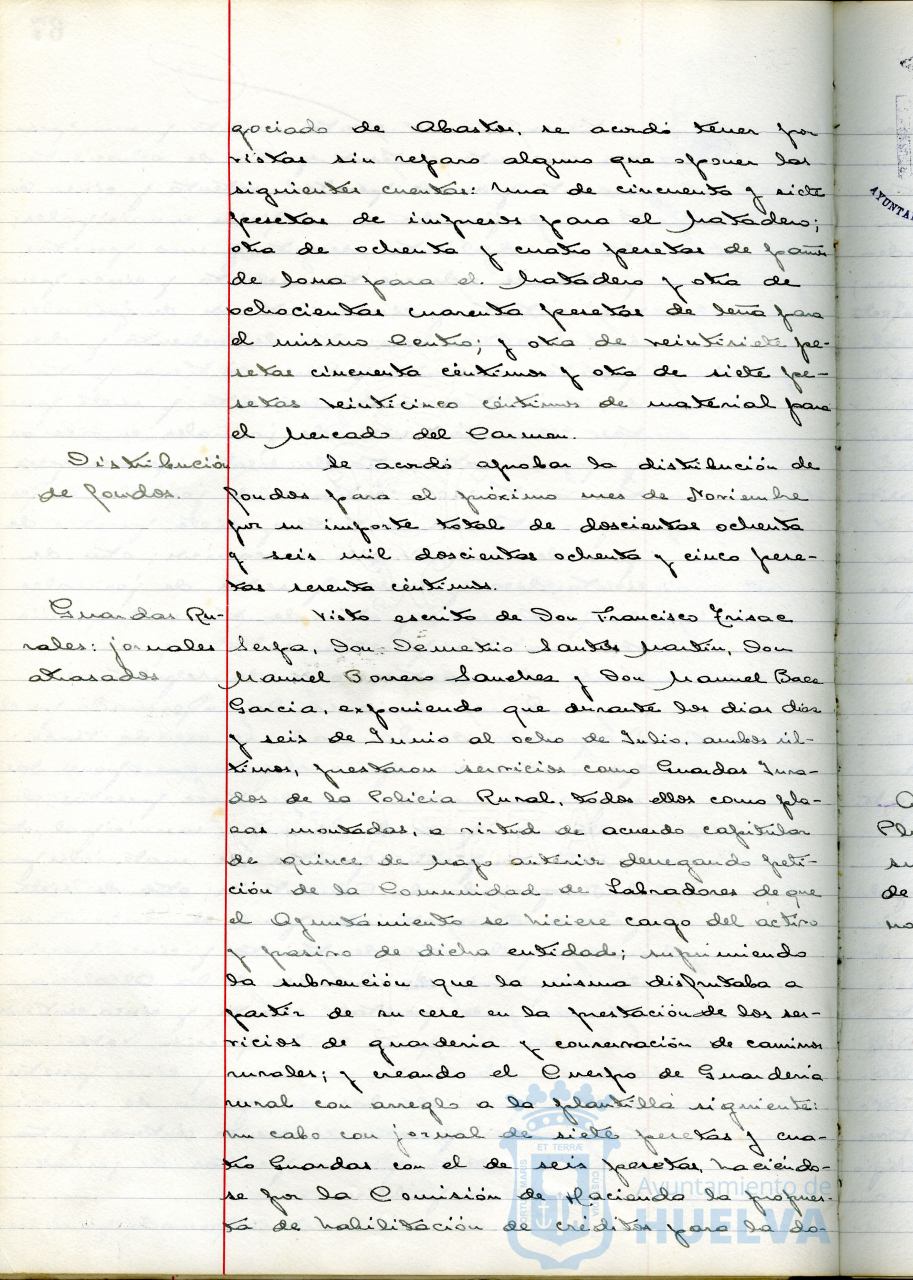 gociado de Abastos, se acordó tener por
vistas sin reparo alguno que oponer las
siguientes cuentas: Una de cincuenta y siete
pesetas de impresos para el Matadero;
otra de ochenta y cuatro pesetas de paños
de lona para el Matadero y otra de
ochocientas cuarenta pesetas de leña para
el mismo Centro; y otra de veintisiete pe-
setas cincuenta céntimos y otra de siete pe-
setas veinticinco céntimos de material para
el Mercado del Carmen.
Distribución
de fondos.
Se acordó aprobar la distribución de
fondos para el próximo mes de Noviembre
por su importe total de doscientas ochenta
y seis mil doscientas ochenta y cinco pese-
tas sesenta céntimos.
Guardas Ru-
rales: jornales
atrasados
Visto escrito de Don Francisco
Serpa, Don Demetrio Santos Martín, Don
Manuel Borrero Sanchez y Don Manuel Baez
Garcia, exponiendo que durante los dias diez
y seis de Junio al ocho de Julio, ambos úl-
timos, prestaron servicios como Guardas Jura-
dos de la Policía Rural, todos ellos como pla-
zas montadas, a virtud de acuerdo capitular
de quince de Mayo anterior denegando peti-
ción de la Comunidad de Labradores de que
el Ayuntamiento se hiciese cargo del activo
y pasivo de dicha entidad; suprimiendo
la subvención que la misma disfrutaba a
partir de su cese en la prestación de los ser-
vicios de guarderia y conservación de caminos
rurales; y creando el Cuerpo de Guardería
rural con arreglo a la plantilla siguiente:
un cabo con jornal de siete pesetas y cua-
tro Guardas con el de seis pesetas, haciéndo-
se por la Comisión de Hacienda la propues-
ta de habilitación de créditos para la do-
Ayuntamiento de
HUELVA